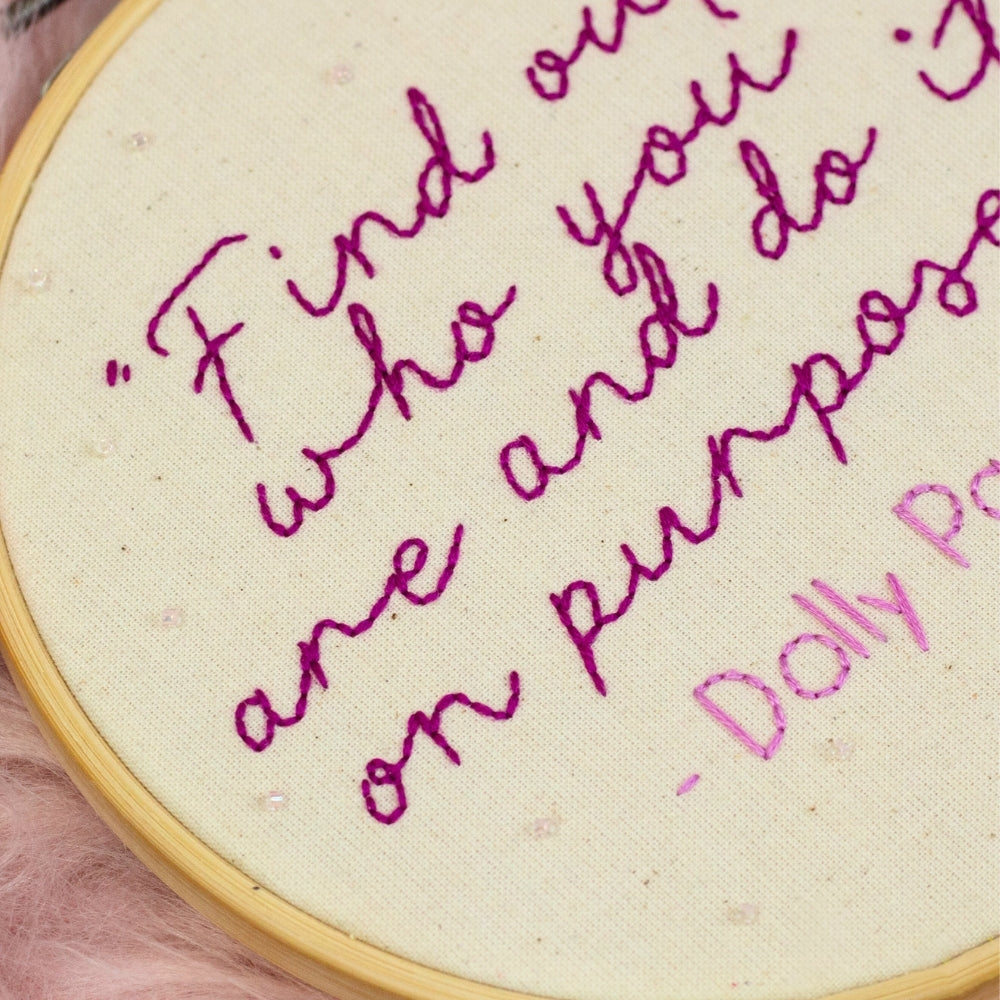 "Find out
who you
are and do it
on purpose
- Dolly Pa